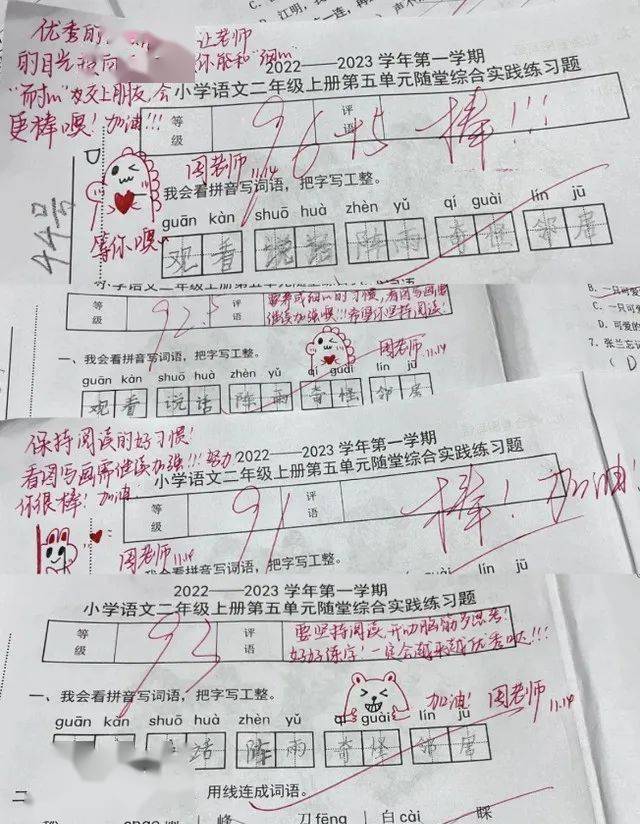 优秀的
让老师
的目光
你能和“细心”
“耐心”做交上朋友,会
更棒噢!加油!!!
2022——2023学年第一学期
小学语文二年级上册第五单元随堂综合实践练习题
等级
96+5
评语
棒!!!
周老师
11.14
44号
等你噢
我会看拼音写词语,把字写工整。
guān kàn shuō huà zhèn yǔ qí guài lín jū
观看 说话 阵雨 奇怪 邻居
等级
92.5
评语
要养成细心的习惯,看图写画需
继续加强噢!!!希望你坚持阅读!
周老师
11.14
一、我会看拼音写词语,把字写工整。
guān kàn shuō huà zhèn yǔ qí guài lín jū
观看 说话 阵雨 奇怪 邻居
B. 一只可爱
C. 一只可
D. 可爱的
7. 张兰忘记
( D
保持阅读的好习惯!
看图写画需继续加强!!!努力
你很棒!加油
2022——2023学年第一学期
小学语文二年级上册第五单元随堂综合实践练习题
等级
91
评语
棒!加油!
周老师 11.14
我会看拼音写词语,把字写工整。
lín jū
2022——2023学年第一学期
小学语文二年级上册第五单元随堂综合实践练习题
等级
93
评语
要坚持阅读,开动脑筋多思考!
好好练字!一定会越来越优秀哒!!!
一、我会看拼音写词语,把字写工整。
加油!周老师
11.14
guān kàn shuō huà zhèn yǔ qí guài lín jū
话 阵雨 奇怪 邻居
二
用线连成词语。
峰 刀 fēng 白 cǎi 睬